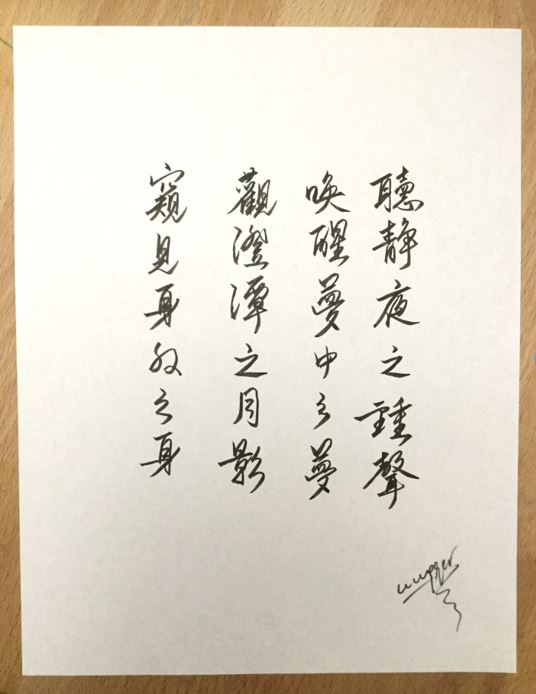 聽靜夜之鍾聲
喚醒夢中之夢
觀澄潭之月影
窺見身外之身